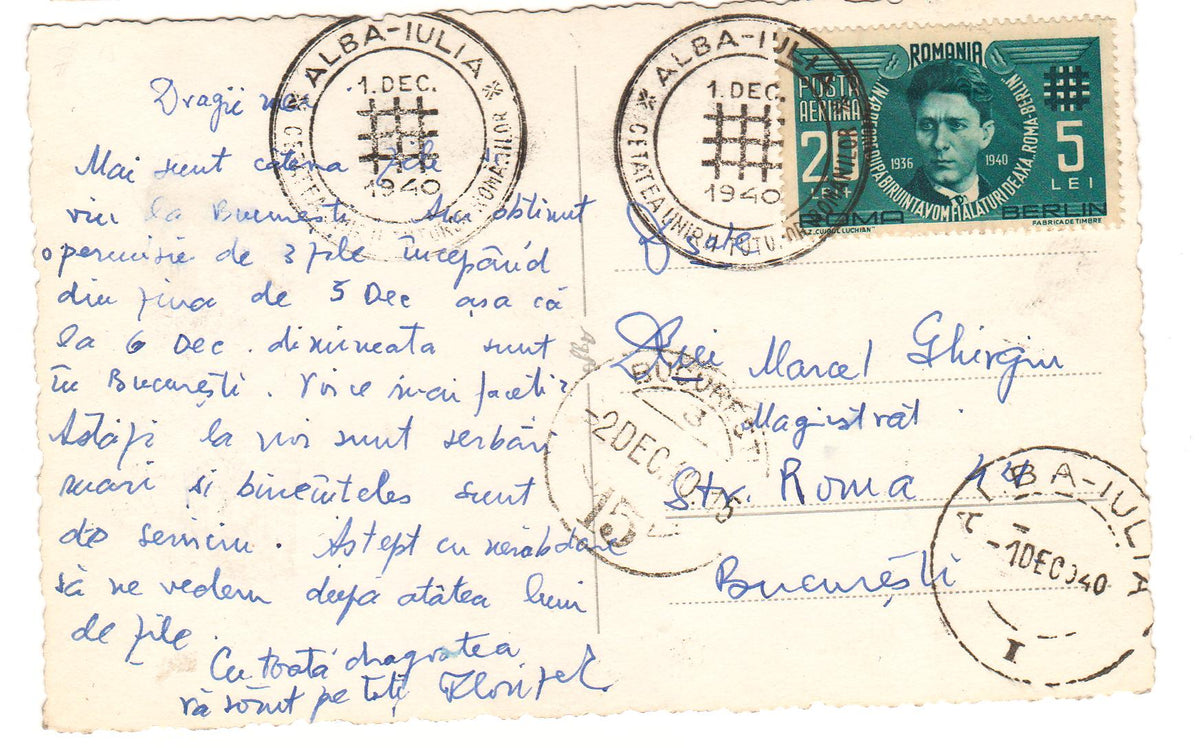 ALBA-IULIA
1. DEC.
1940
CETATEA UNIRII TUTUROR ROMANILOR
ALBA-IULIA
1. DEC.
1940
CETATEA UNIRII TUTUROR ROMANILOR
ROMANIA
POSTA
AERIANA
20
LEI
5
LEI
1936
1940
INTR'O EPOCA DUPA BIRUINTA VOM FI ALATURI DE AXA ROMA-BERLIN
ROMA
BERLIN
Z. "CUIBUL LUCHIAN"
FABRICA DE TIMBRE
Dragii mei
Mai sunt cateva zile
viu la București Am obtinut
o permisie de 3 zile începând
din ziua de 5 Dec așa că
la 6 Dec. dimineata sunt
în București. Voi ce mai faceti?
Astăzi la noi sunt serbări
mari si bineînteles sunt
de serviciu. Astept cu nerabdare
să ne vedem după atâtea luni
de zile.
Cu toată dragostea
vă sărut pe toți
D sale
Dlui Marcel Ghirgiu
Magistrat.
Str. Roma 44
București
BUCUREȘTI
3
-2DEC.40.15
15
ALBA-IULIA
-1DEC940
I